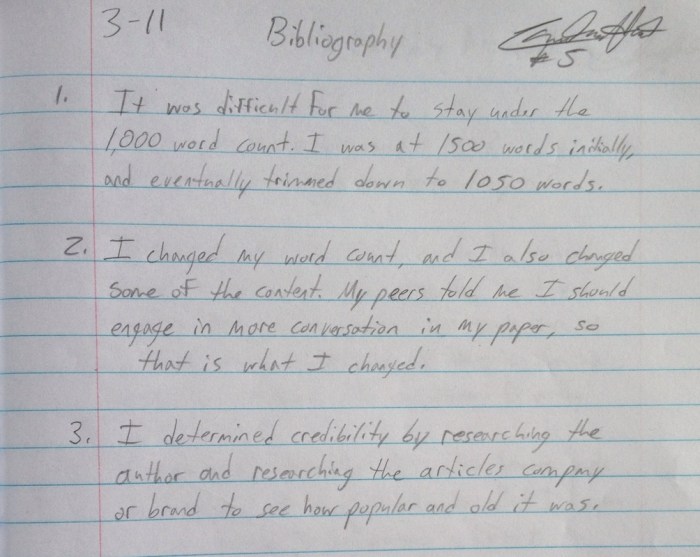 3-11
Bibliography
#5
1. It was difficult for me to stay under the
1,000 word count. I was at 1500 words initially,
and eventually trimmed down to 1050 words.
2. I changed my word count, and I also changed
some of the content. My peers told me I should
engage in more conversation in my paper, so
that is what I changed.
3. I determined credibility by researching the
author and researching the articles company
or brand to see how popular and old it was.